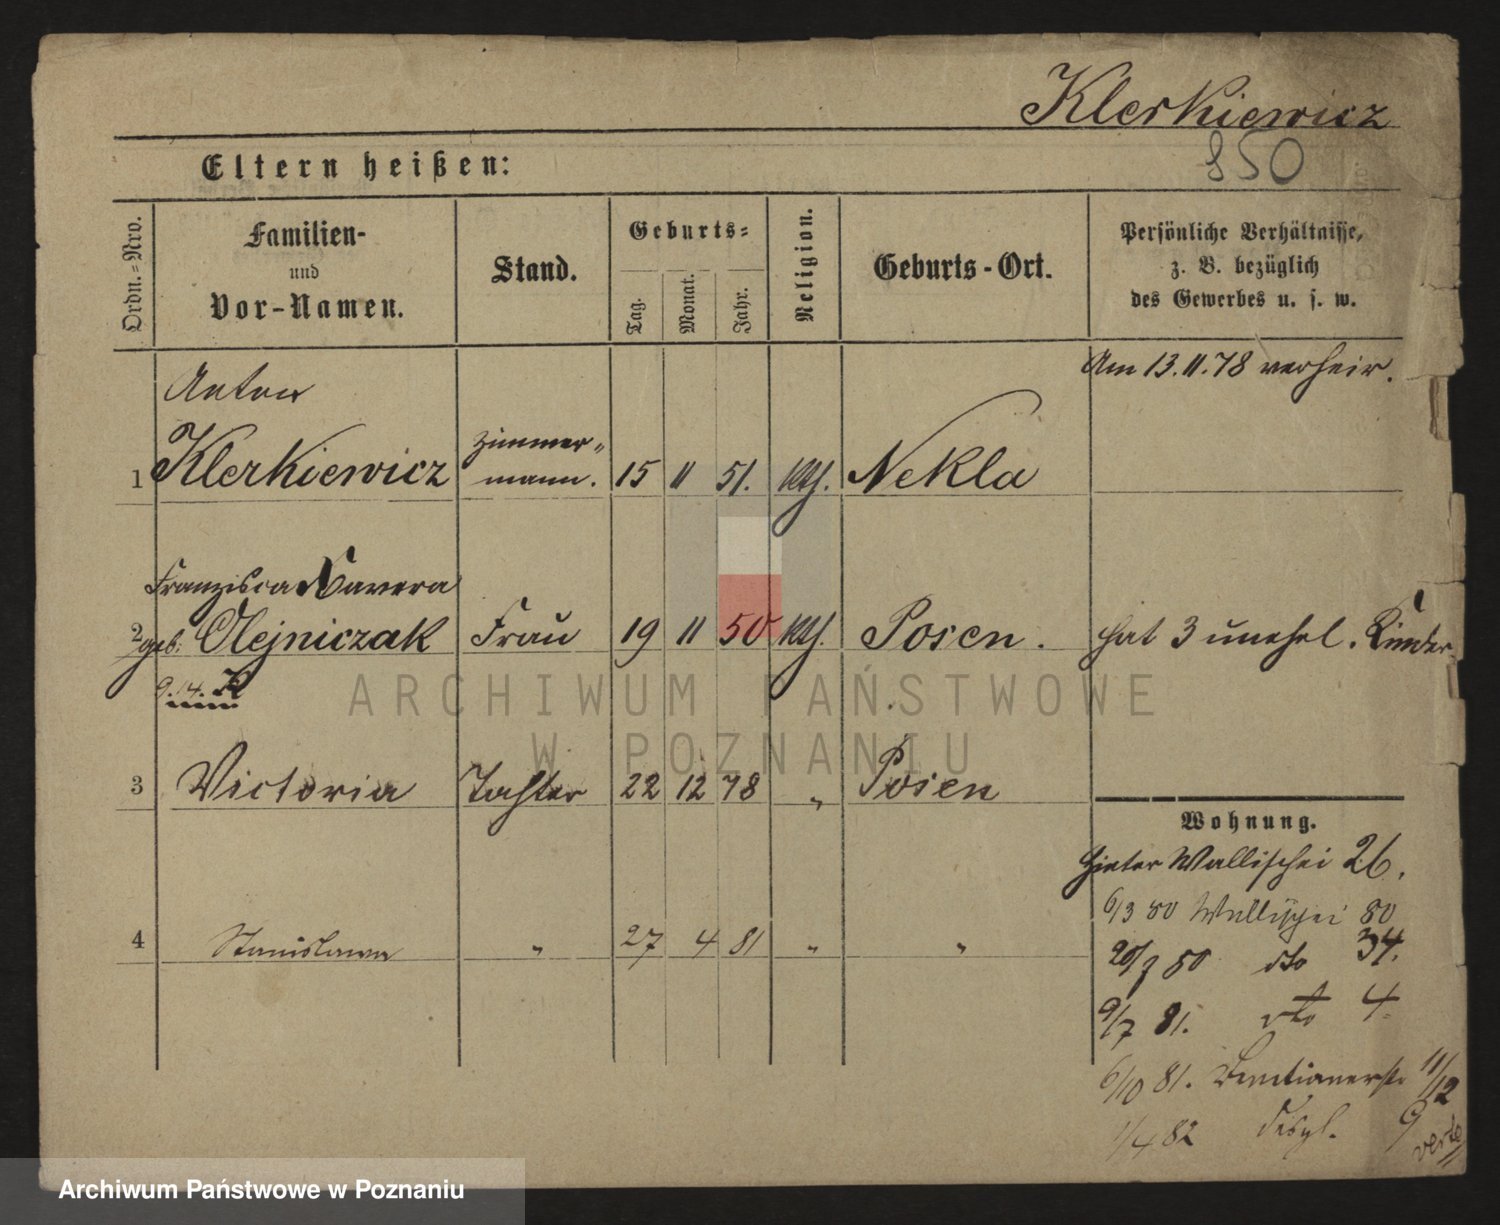 Klerkiewicz
850
Eltern heißen:
Ordn.=Nro.
Familien-
und
Vor-Namen.
Stand.
Geburts=
Tag.
Monat.
Jahr.
Religion.
Geburts-Ort.
Persönliche Verhältnisse,
z. B. bezüglich
des Gewerbes u. s. w.
Am 13.11.78 verheir.
Anton
1 Klerkiewicz Zimmer=
mann. 15 11 51. kth. Nekla
Franzisca Xavera
2 geb. Olejniczak Frau 19 11 50 kth. Posen. hat 3 unehel. Kinder
9.14. K
3 Victoria Tochter 22 12 78 " Posen
4 Stanislawa " 27 4 81 " "
Wohnung.
Hinter Wallischei 26.
6/3 80 Wallischei 80
20/7 80 dto 34.
9/7 81. dto 4
6/10 81. 11/12
1/4 82 desgl. 9
verte
ARCHIWUM PAŃSTWOWE
W POZNANIU
Archiwum Państwowe w Poznaniu